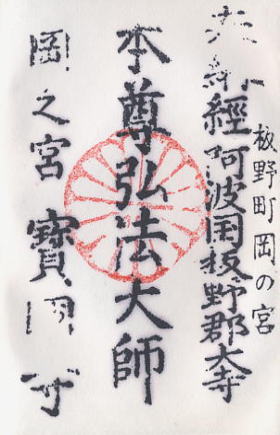 奉納經 阿波国板野郡大寺
板野町岡の宮
本尊弘法大師
岡之宮 寶国寺